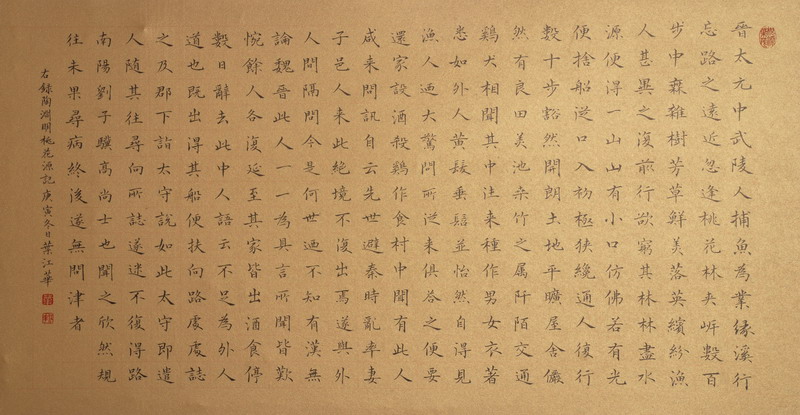 晉太元中武陵人捕魚為業緣溪行
忘路之遠近忽逢桃花林夾岸數百
步中無雜樹芳草鮮美落英繽紛漁
人甚異之復前行欲窮其林林盡水
源便得一山山有小口仿佛若有光
便捨船從口入初極狹纔通人復行
數十步豁然開朗土地平曠屋舍儼
然有良田美池桑竹之属阡陌交通
鷄犬相聞其中往来種作男女衣著
悉如外人黃髮垂髫並怡然自得見
漁人迺大驚問所從来俱答之便要
還家設酒殺鷄作食村中聞有此人
咸来問訊自云先世避秦時亂率妻
子邑人来此絶境不復出焉遂與外
人間隔問今是何世迺不知有漢無
論魏晉此人一一為具言所聞皆歎
惋餘人各復延至其家皆出酒食停
數日辭去此中人語云不足為外人
道也既出得其船便扶向路處處誌
之及郡下詣太守說如此太守即遣
人隨其往尋向所誌遂迷不復得路
南陽劉子驥高尚士也聞之欣然規
往未果尋病終後遂無問津者
右錄陶淵明桃花源記庚寅冬日葉江華